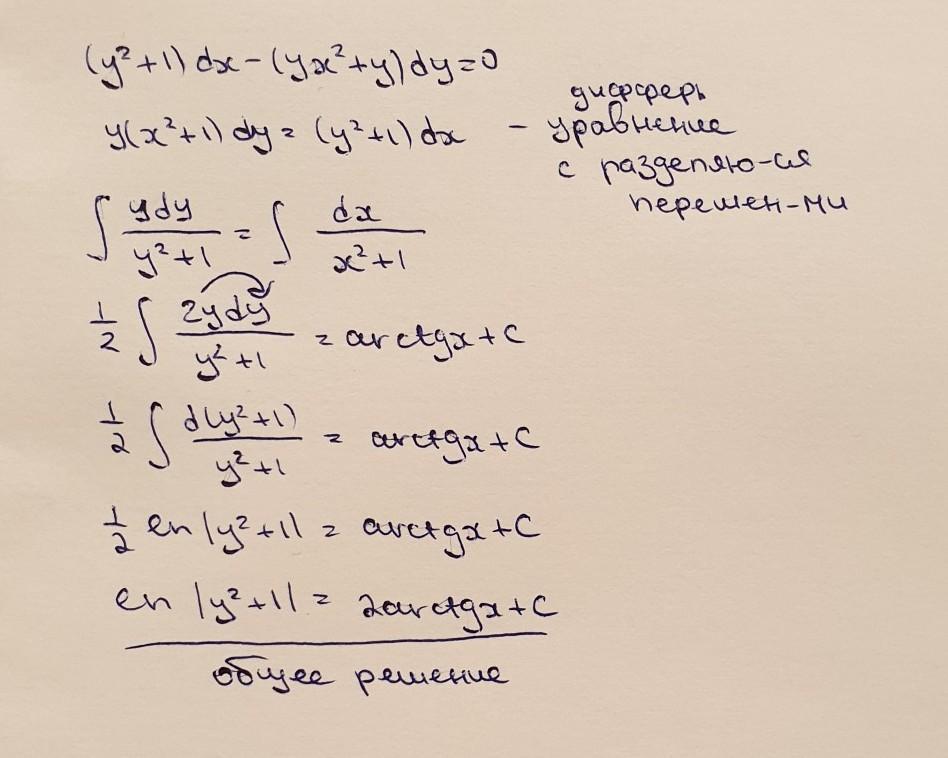 (y²+1) dx - (yx²+y) dy = 0
y(x²+1) dy = (y²+1) dx - дифферь
уравнение
с разделяю-ся
перемен-ми
∫ ydy / y²+1 = ∫ dx / x²+1
1/2 ∫ 2ydy / y²+1 = arctgx + C
1/2 ∫ d(y²+1) / y²+1 = arctgx + C
1/2 ln |y²+1| = arctgx + C
ln |y²+1| = 2arctgx + C
общее решение